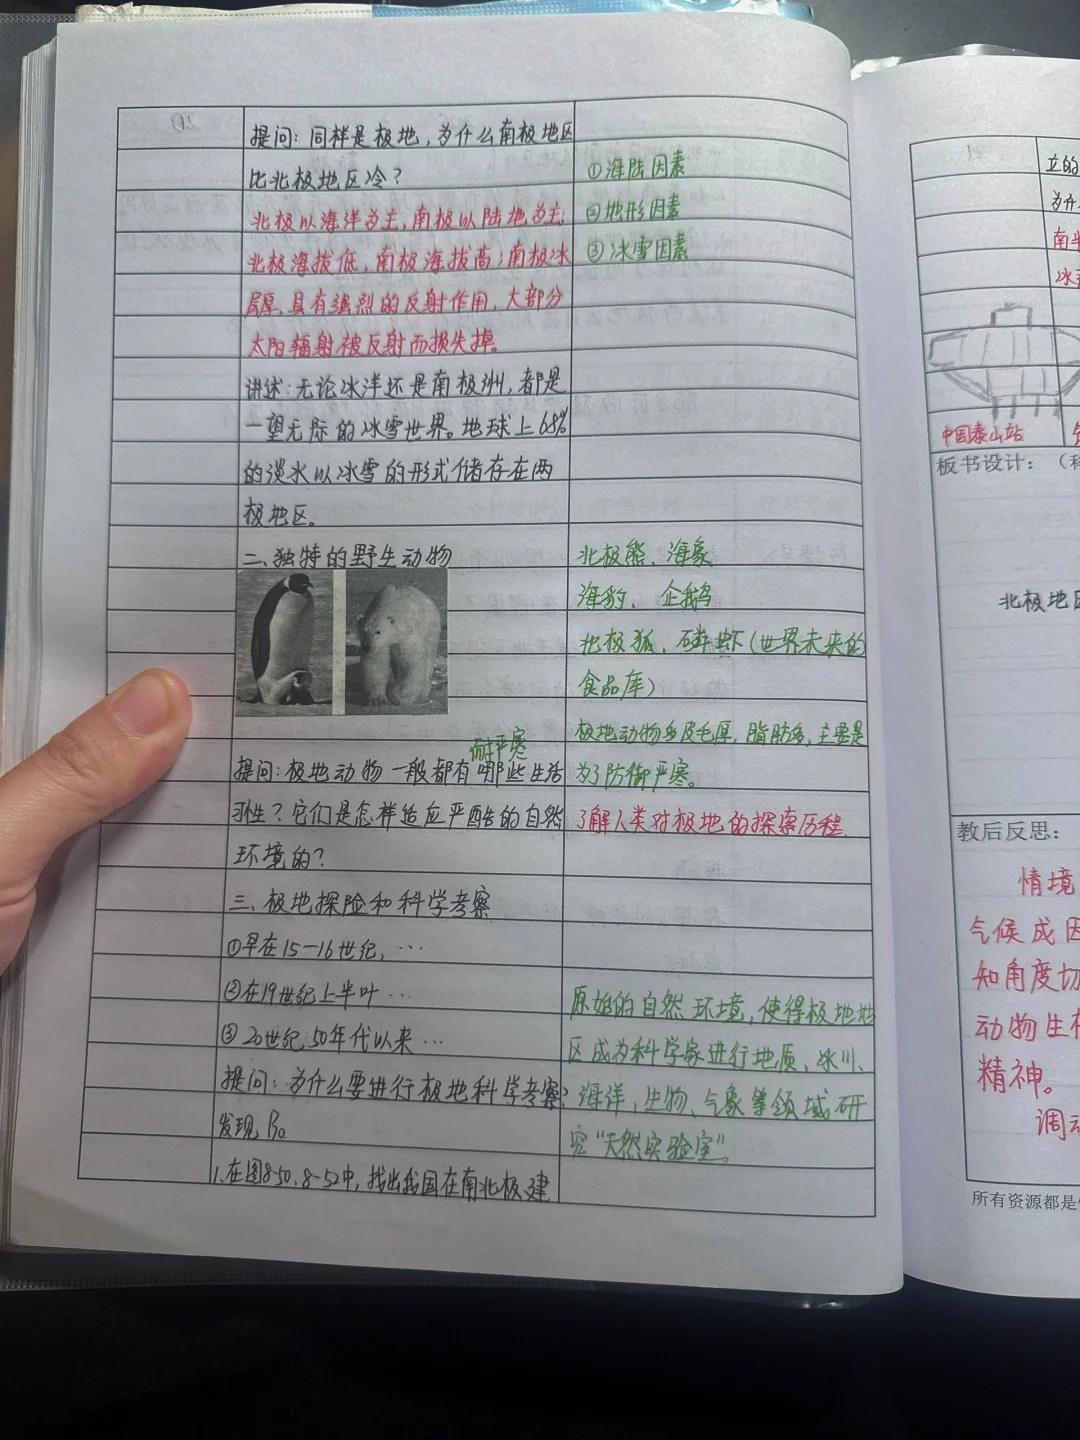 20
提问：同样是极地，为什么南极地区
比北极地区冷？
北极以海洋为主，南极以陆地为主；
北极海拔低，南极海拔高；南极冰
层厚，具有强烈的反射作用，大部分
太阳辐射被反射而损失掉。
讲述：无论冰洋还是南极洲，都是
一望无际的冰雪世界。地球上68%
的淡水以冰雪的形式储存在两
极地区。
二、独特的野生动物
耐严寒
提问：极地动物一般都有哪些生活
习性？它们是怎样适应严酷的自然
环境的？
三、极地探险和科学考察
①早在15—16世纪，…
②在19世纪上半叶…
③20世纪50年代以来…
提问：为什么要进行极地科学考察？
发现
1.在图8-50、8-52中，找出我国在南北极建
①海陆因素
②地形因素
③冰雪因素
北极熊、海象
海豹、企鹅
北极狐、磷虾（世界未来的
食品库）
极地动物多皮毛厚，脂肪多，主要是
为了防御严寒。
了解人类对极地的探索历程
原始的自然环境，使得极地地
区成为科学家进行地质、冰川、
海洋、生物、气象等领域研
究“天然实验室”。
21
立的
为什
南半
中国泰山站
板书设计：（科
北极地区
教后反思：
情境
气候成因
知角度切
动物生存
精神。
调动
所有资源都是